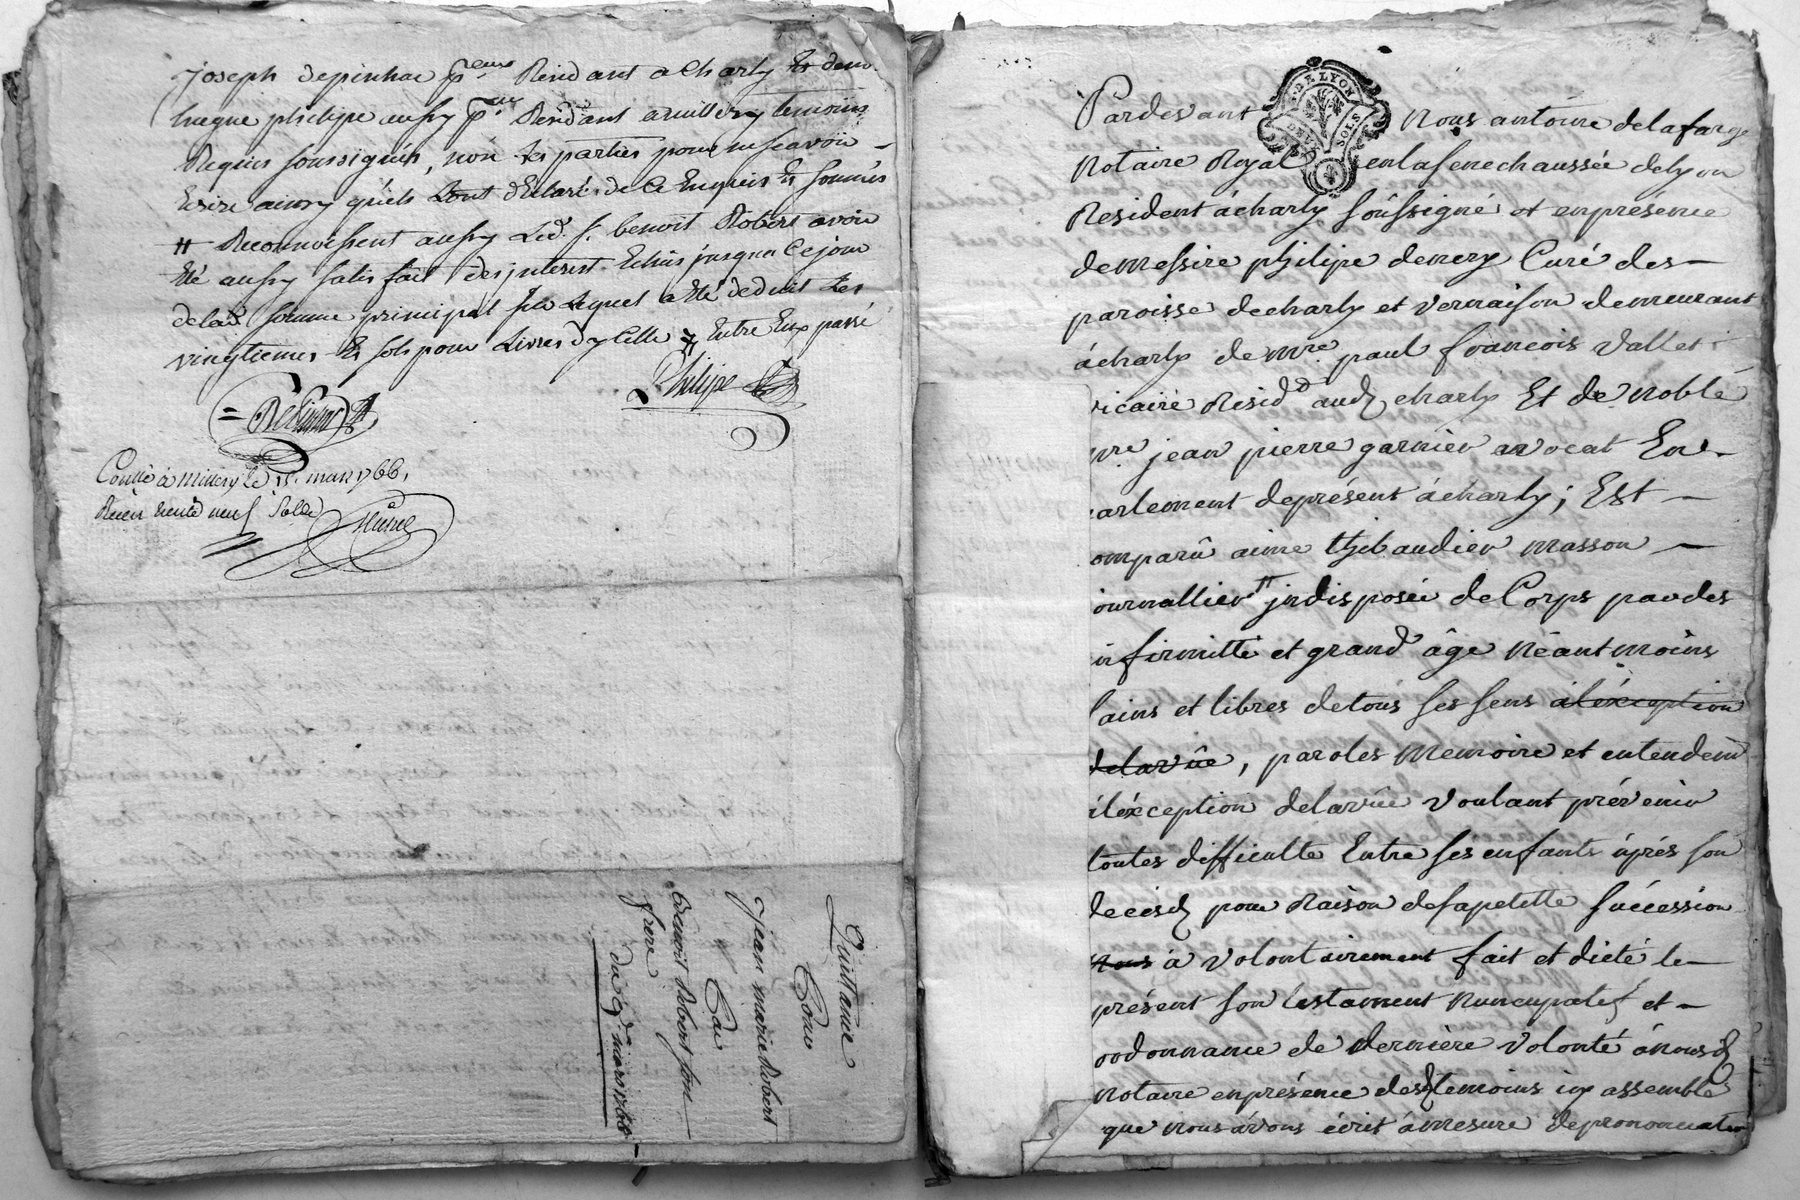 joseph depinhac Rendant a Charly Et dom
hugue philipe aussy Rendant a millery temoins
Requis soussignés, nón Les parties pour ne scavoir
Ecrire ainsy quéls Lont déclaré de Ce Enquis Et sommés
# Reconnoissent aussy Led. s. benoit Robert avoir
Eté aussy satisfait des jnterest Echus jusqua Ce jour
delad. somme principal sur Lequel a Eté deduit Les
vingtiemes Et sols pour Livres dy Celle # Entre Eux passé
Philipe
Depinhac
Conllé à Millery le 15. mars 1766.
Reçu trente neuf sols
Quittance
Pour
Jean marie Robert
Par
Benoit Robert son
frere
du 9 mars 1766
DE LYON
DEUX SOLS
Pardevant Nous antoine delafarge
Notaire Royal en la senechaussée de lyon
Resident á charly soussigné et en presence
de Messire philipe denery Curé des
paroisse de charly et vernaison demeurant
á charly de mre. paul francois vallet
vicaire Resid. aud. charly Et de Noble
mre jean pierre garnier avocat En
arlement de présent á charly; Est
omparû aimé thibaudier masson
ournallier # jndisposée de Corps par des
infirmitté et grand âge Néantmoins
sains et libres de tous ses sens á l'éxception
de la vûe, paroles Memoire et entendem
á l'éxception de la vûe voulant prévenir
toutes difficulte Entre ses enfants áprés son
decésd pour Raison de sa petitte succession
nous á volontairement fait et dicté le
présent son testament Nuncupatif et
ordonnance de derniére volonté á nousd.
Notaire en présence desd. temoins icy assemblés
que nous ávons écrit á mesure de prononciation